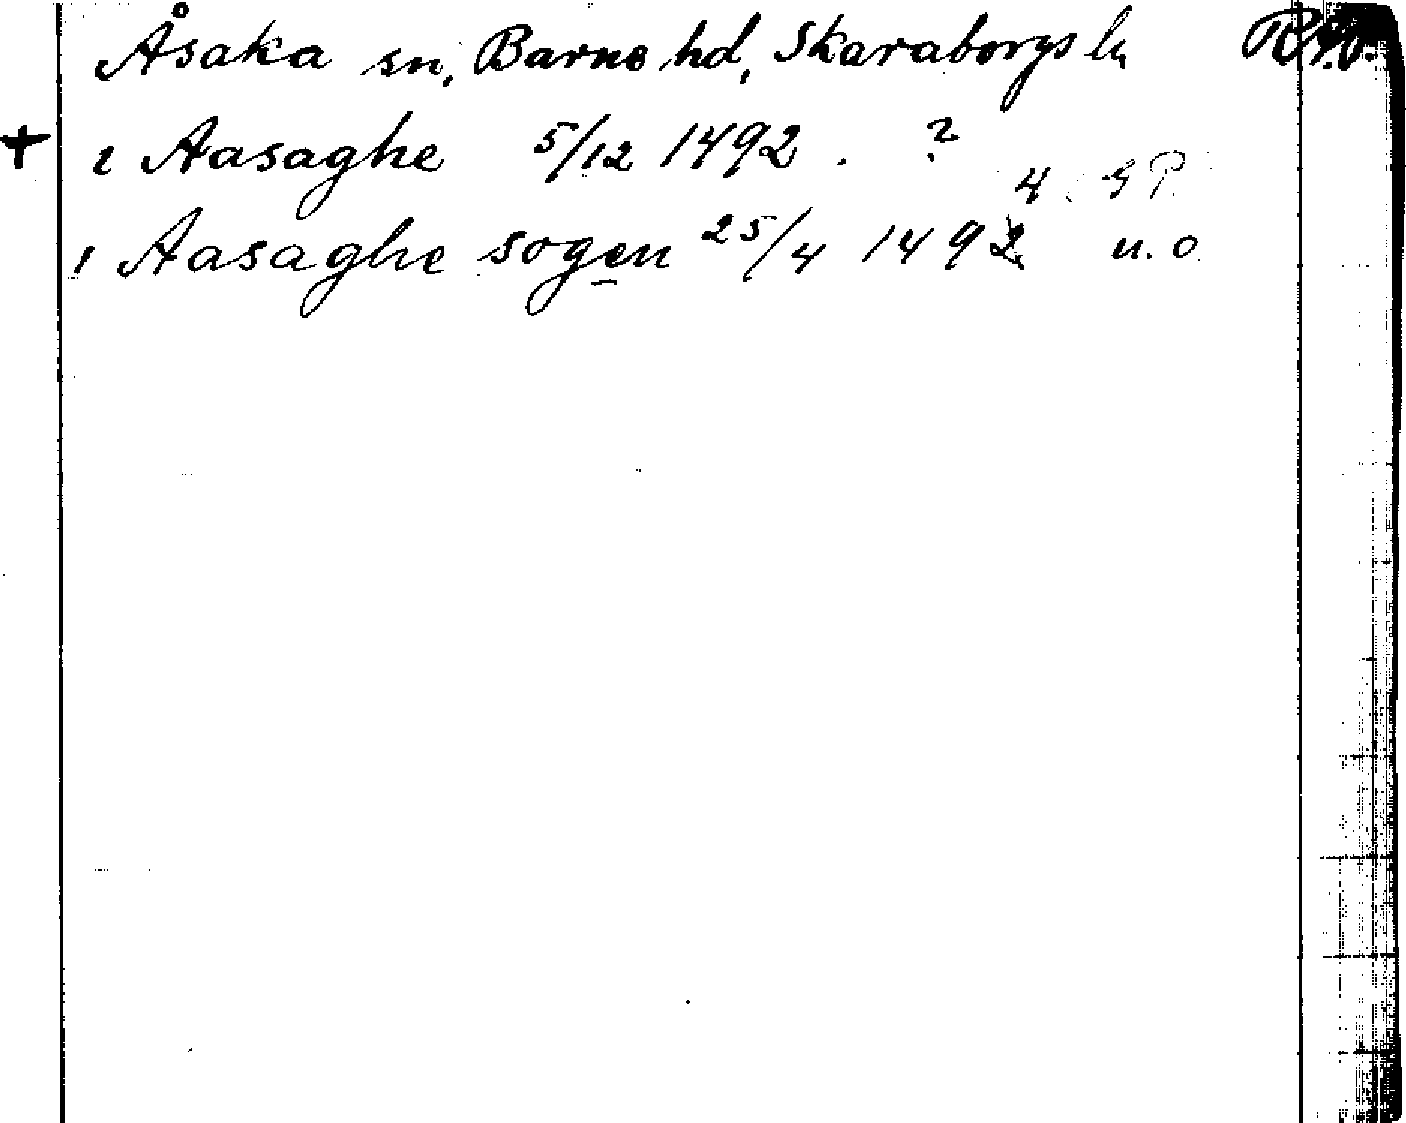 Åsaka sn, Barne hd, Skaraborgs ln
+ i Aasaghe 5/12 1492 . ?
4 S P.
i Aasaghe sogen 25/4 1492 u. o.